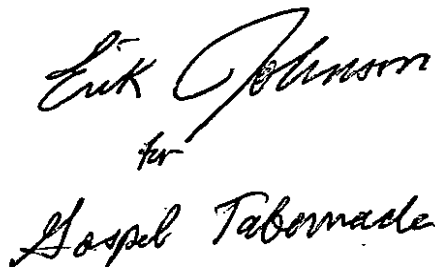 Erik Johnson
for
Gospel Tabernacle